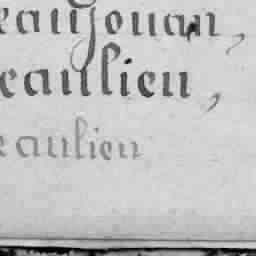 eaujouan,
eaulieu,
eaulieu